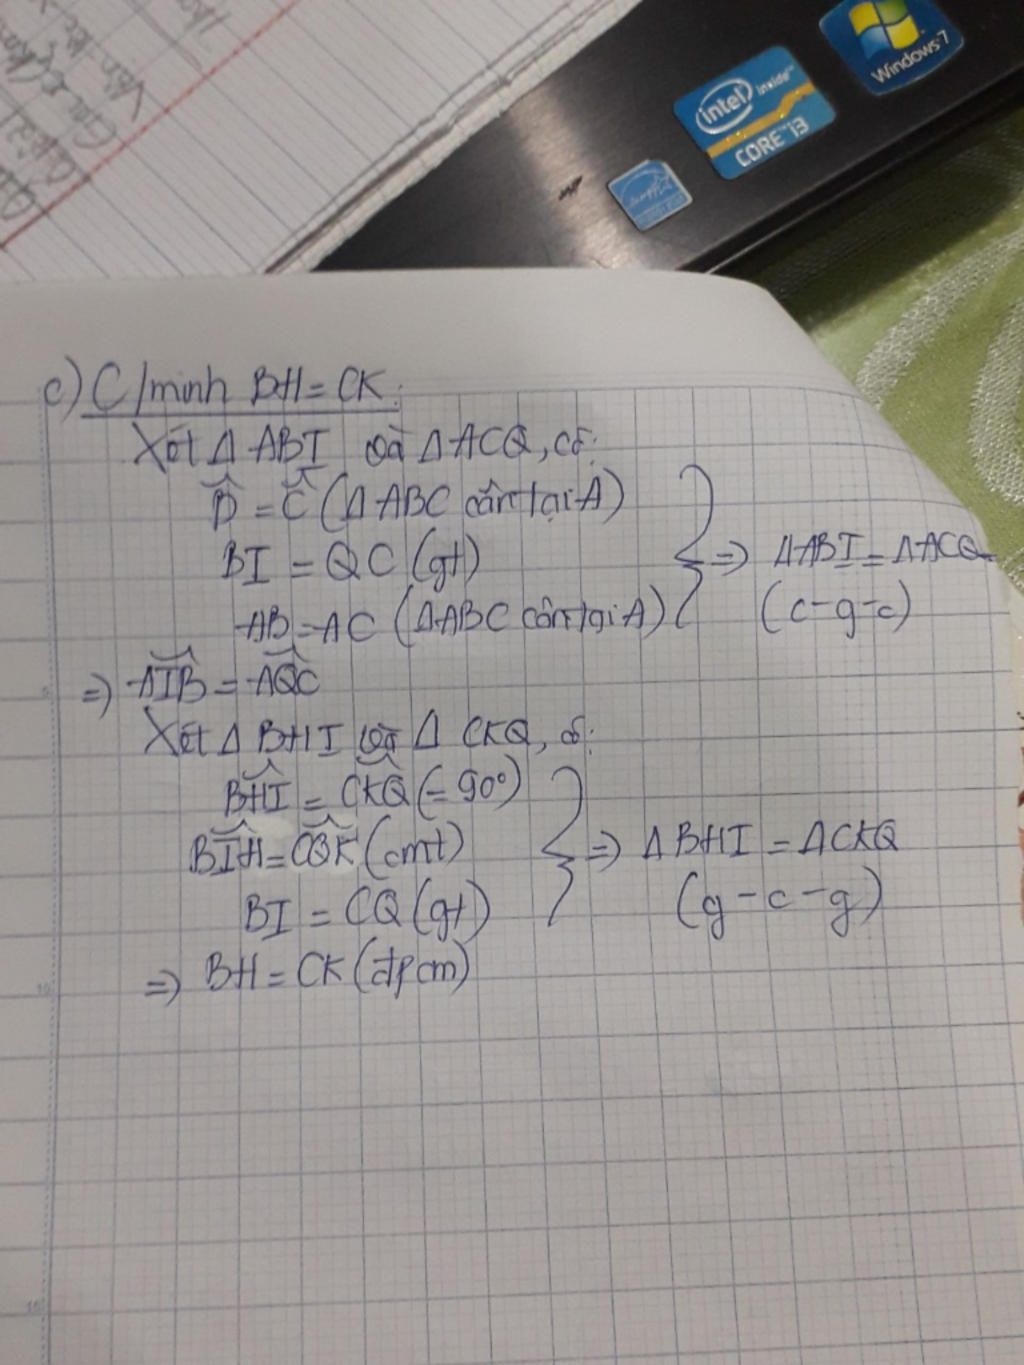 intel inside™
CORE™ i3
Windows 7
c) C/minh BH = CK:
Xét Δ ABI và Δ ACQ, có:
B̂ = Ĉ (Δ ABC cân tại A)
BI = QC (gt)
AB = AC (Δ ABC cân tại A)
=> ΔABI = ΔACQ
(c-g-c)
=> AIB = AQC
Xét Δ BHI và Δ CKQ, có:
BHI = CKQ (= 90°)
BIH = CQK (cmt)
BI = CQ (gt)
=> Δ BHI = ΔCKQ
(g-c-g)
=> BH = CK (đpcm)